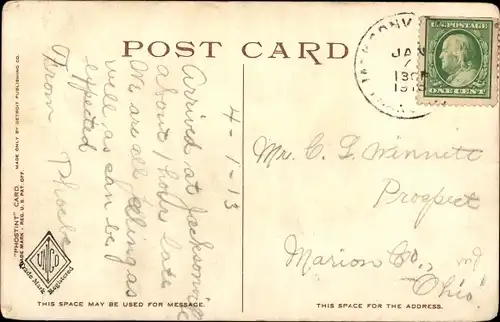 POST CARD
JACKSONVILLE
JAN
1913
U.S. POSTAGE
ONE CENT
4-1-13
Arrived at Jacksonville
about 1 hour late
We are all feeling as
well as can be
expected
From Phoebe
Mr. C. L. Winnett
Prospect
Marion Co.,
"Ohio"
"PHOSTINT" CARD. MADE ONLY BY DETROIT PUBLISHING CO.
TRADE MARK - REG. U.S. PAT. OFF.
Trade Mark Registered
THIS SPACE MAY BE USED FOR MESSAGE.
THIS SPACE FOR THE ADDRESS.